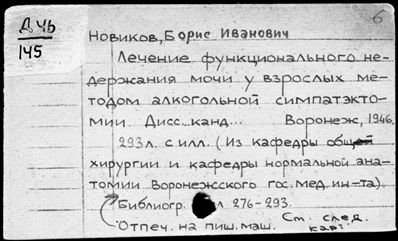 6
Д Чб
145
Новиков, Борис Иванович
Лечение функционального не-
держания мочи у взрослых ме-
тодом алкогольной симпатэкто-
мии. Дисс. канд... Воронеж, 1946.
293 л. с илл. (Из кафедры общей
хирургии и кафедры нормальной ана-
томии Воронежского гос. мед. ин-та).
Библиогр. л 276-293.
Отпеч. на пиш. маш. См. след.
карт.